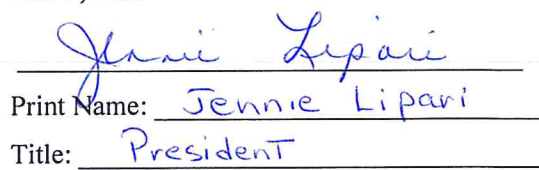 Jennie Lipari
Print Name: Jennie Lipari
Title: President